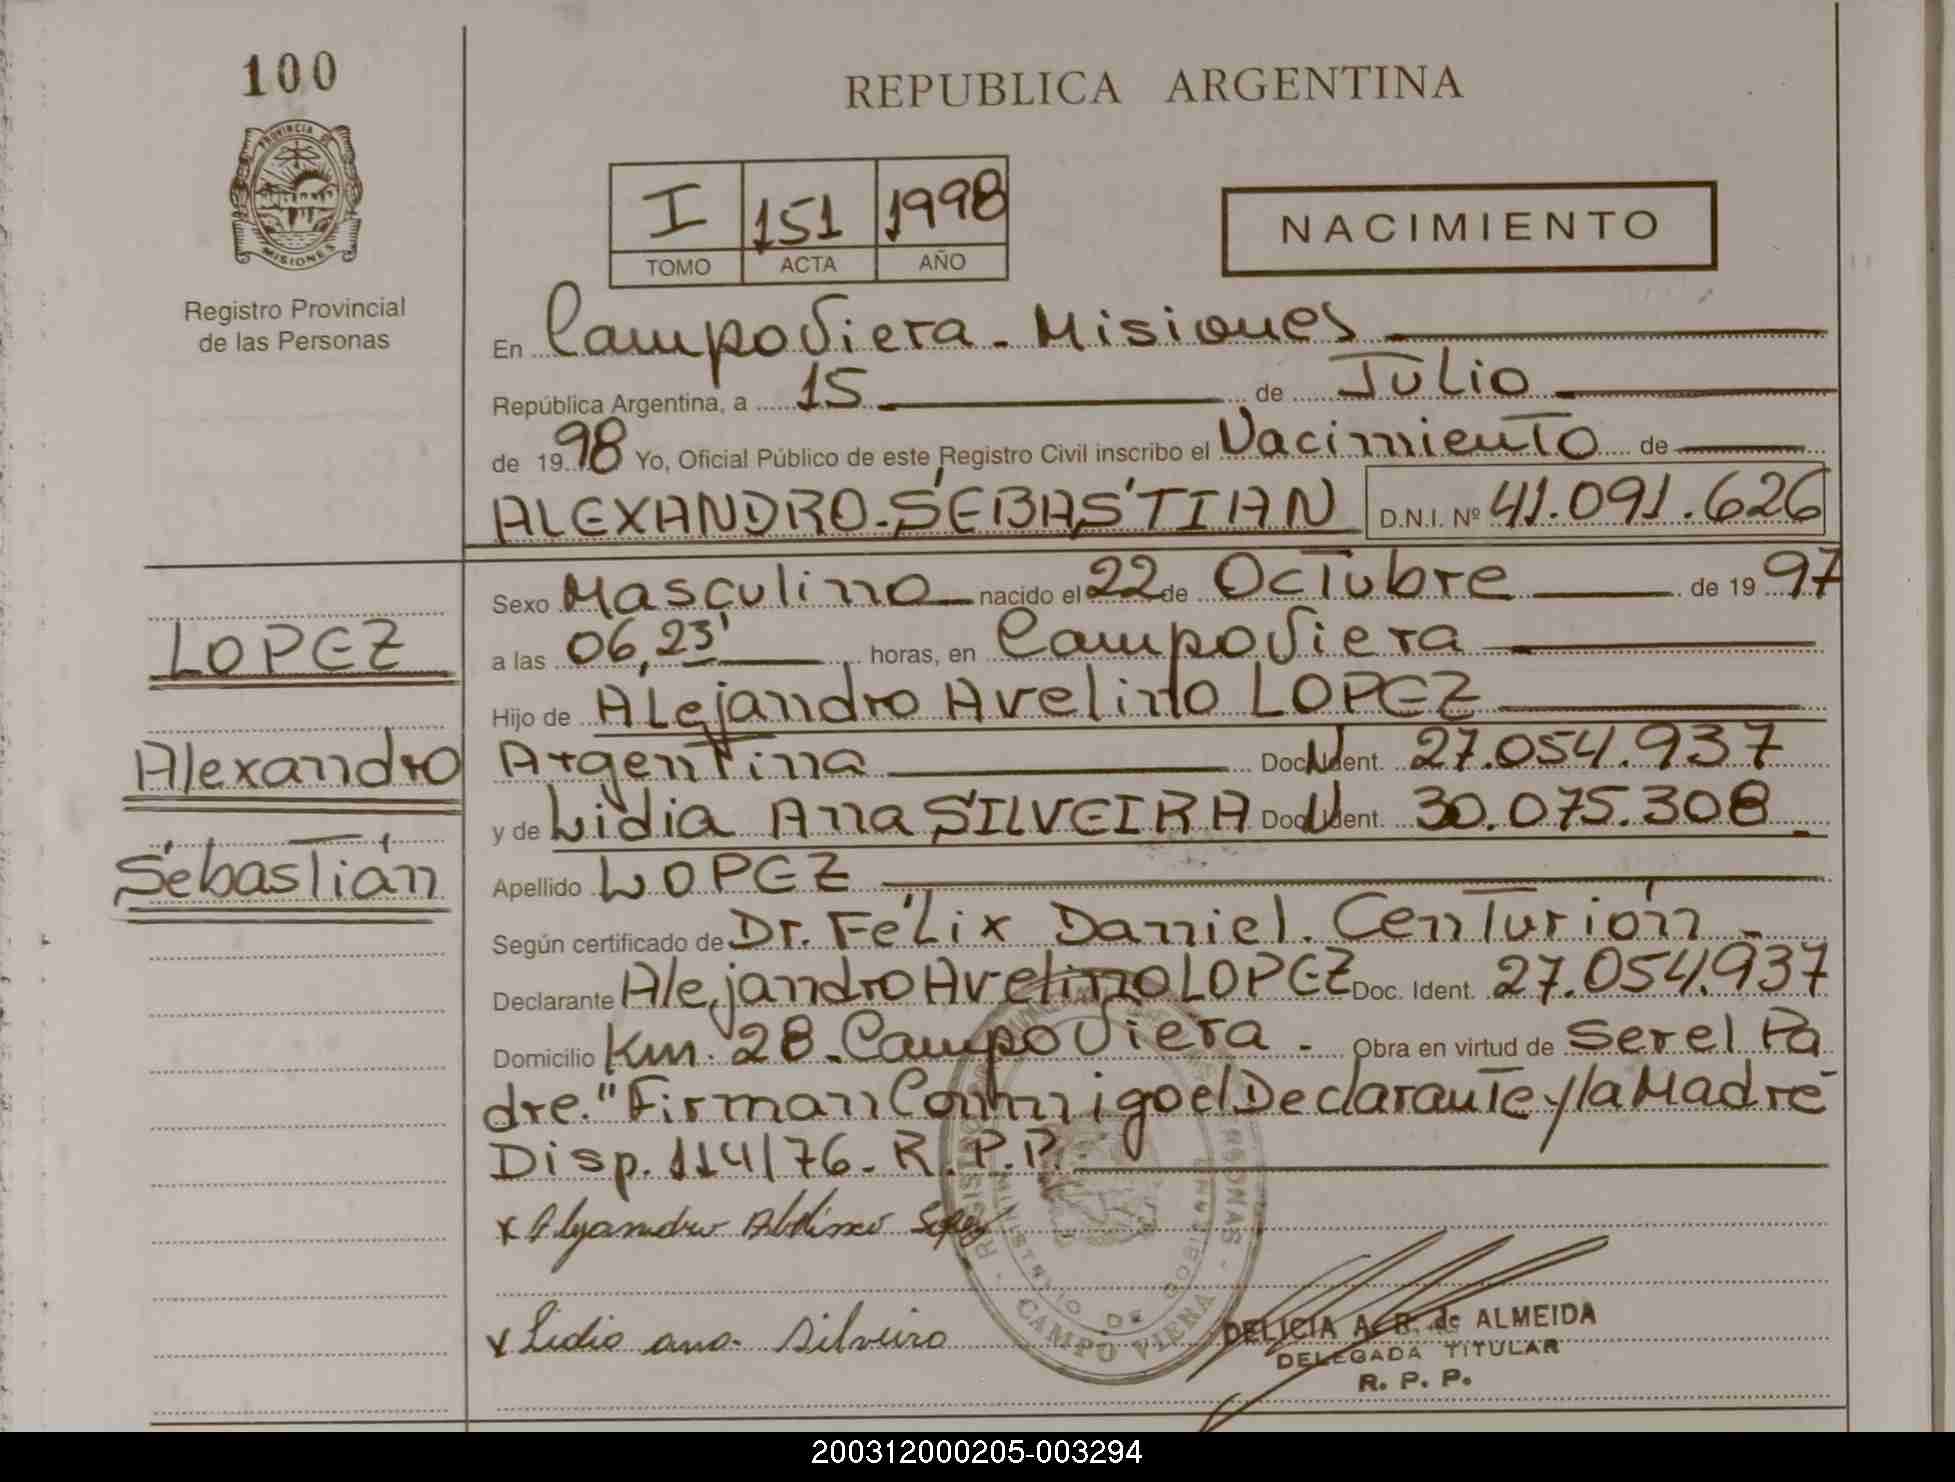 100
PROVINCIA DE
MISIONES
Registro Provincial
de las Personas
REPUBLICA ARGENTINA
I 151 1998
TOMO ACTA AÑO
NACIMIENTO
En Campo Viera - Misiones
República Argentina, a 15 de Julio
de 1998 Yo, Oficial Público de este Registro Civil inscribo el Nacimiento de
ALEXANDRO SEBASTIAN D.N.I. Nº 41.091.626
LOPEZ
Alexandro
Sebastián
Sexo Masculino nacido el 22 de Octubre de 1997
a las 06,23' horas, en Campo Viera
Hijo de Alejandro Avelino LOPEZ
Argentina Doc. Ident. 27.054.937
y de Lidia Ana SILVEIRA Doc. Ident. 30.075.308
Apellido LOPEZ
Según certificado de Dr. Félix Daniel Centurión
Declarante Alejandro Avelino LOPEZ Doc. Ident. 27.054.937
Domicilio Km. 28 - Campo Viera - Obra en virtud de ser el Pa
dre." Firman Conmigo el Declarante y la Madre
Disp. 114/76 - R.P.P.
x Alejandro Lopez
x Lidia ana Silveira
CAMPO VIERA
DELICIA A. R. de ALMEIDA
DELEGADA TITULAR
R. P. P.
200312000205-003294